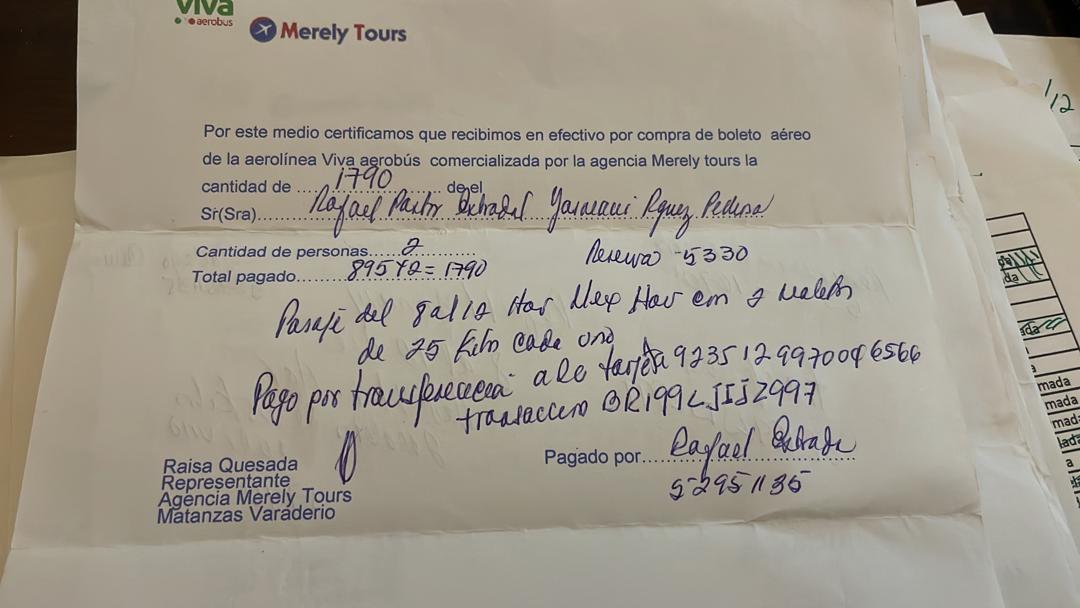 viva
aerobus
Merely Tours
Por este medio certificamos que recibimos en efectivo por compra de boleto aéreo
de la aerolínea Viva aerobús comercializada por la agencia Merely tours la
cantidad de .....1790..... de el
Sr(Sra)....Rafael Pastor Estrada Yasmani Rguez Pedroso
Cantidad de personas.....2.....
Reserva -5330
Total pagado.....895x2= 1790
Pasaje del 8 al 12 Hav Mex Hav con 2 maletas
de 25 Kilo cada uno
Pago por transferencia a la tarjeta 9235129970046566
transaccion BR199LJIJZ997
Raisa Quesada
Representante
Agencia Merely Tours
Matanzas Varaderio
Pagado por....Rafael Estrada
52951135
/12
mada
mada